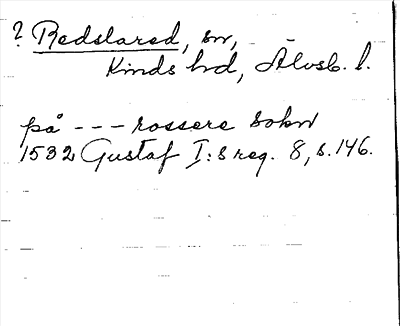 ? Redslared, sn,
Kinds hd, Älvsb. l.
på --- rossere sokn
1532 Gustaf I:s reg. 8, s. 146.